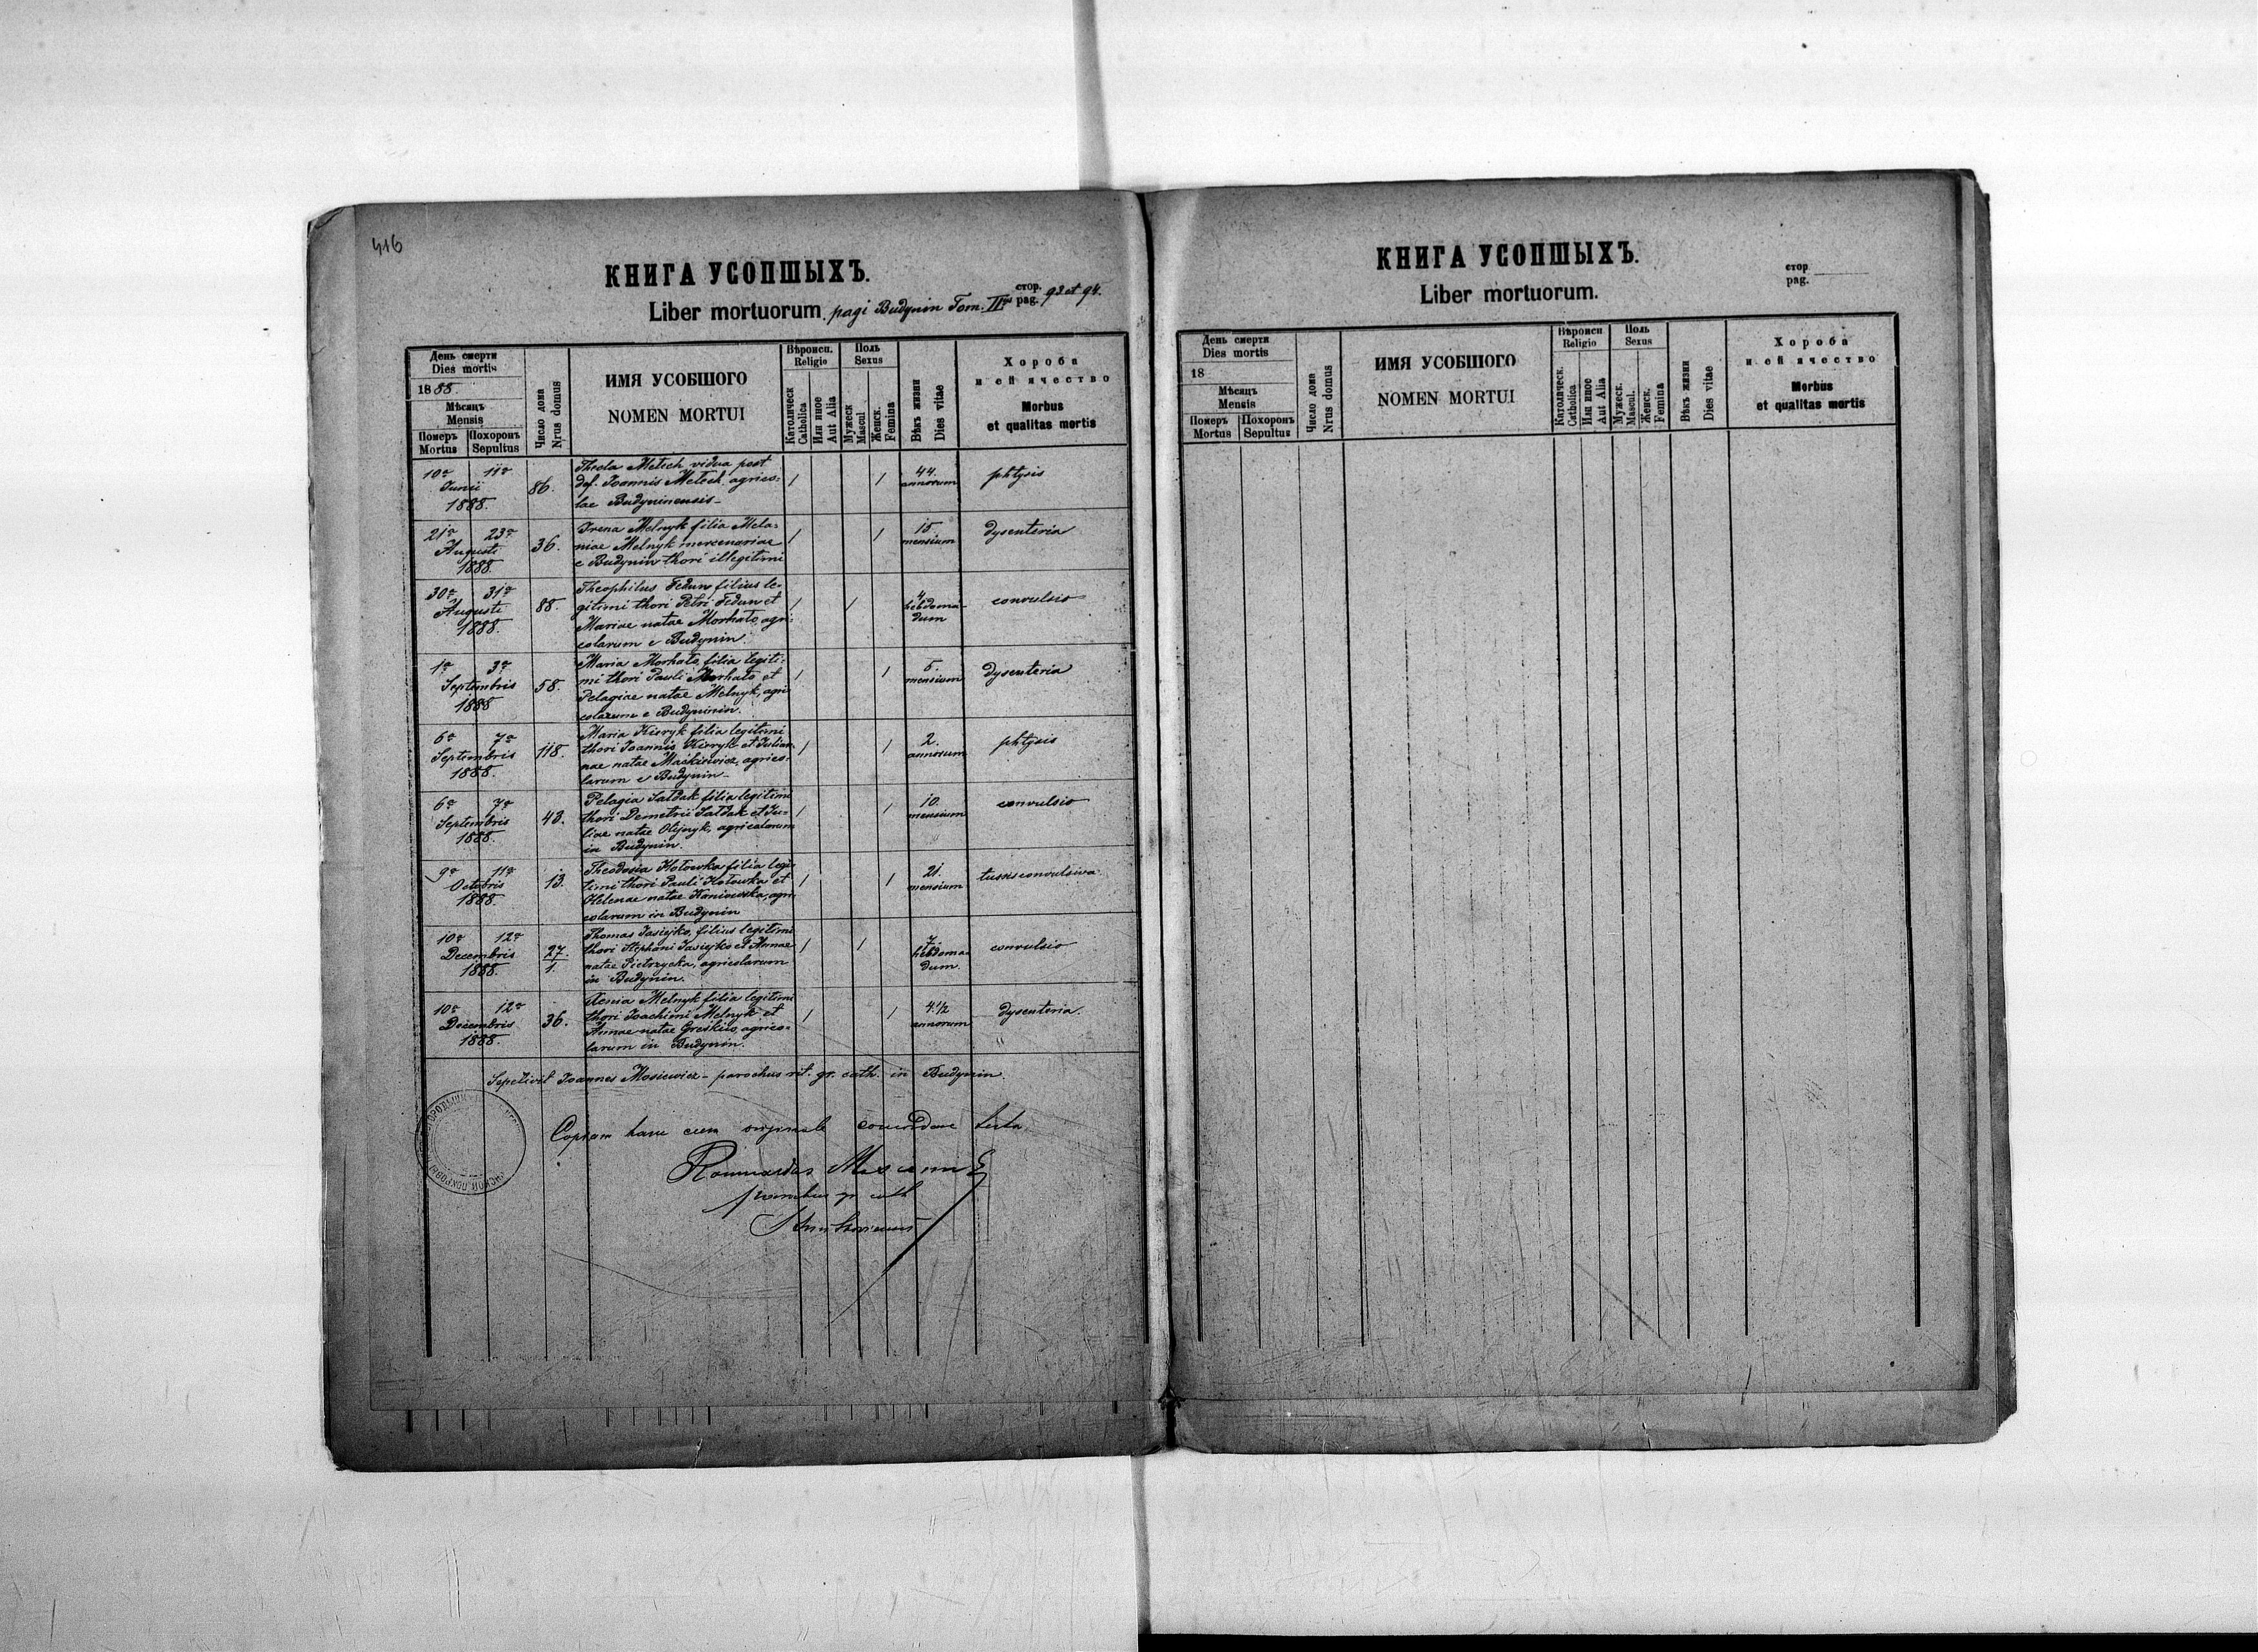 416
КНИГА УСОПШЫХЪ.
Liber mortuorum. pagi Budynin Tom. II стор. pag. 93 et 94.
День смерти
Dies mortis
1888.
Мѣсяцъ
Mensis
Померъ Mortus
Похоронъ Sepultus
Число дома
Nrus domus
ИМЯ УСОБШОГО
NOMEN MORTUI
Вѣроисп.
Religio
Католическ
Catholica
Или иное
Aut Alia
Полъ
Sexus
Мужеск
Mascul.
Женск.
Femina
Вѣкъ жизни
Dies vitae
Хороба
и ей ячество
Morbus
et qualitas mortis
10a 11a Junii 1888. 86.
Thecla Metech vidua post
def. Joannis Metech agrico-
lae Budyninensis
/ / 44. annorum phtysis
21a 23a Augusti 1888. 36.
Irena Melnyk filia Mela-
niae Melnyk mercenariae
e Budynin thori illegitimi
/ / 15 mensium dysenteria
30a 31a Augusti 1888. 88.
Theophilus Fedun filius le-
gitimi thori Petri Fedun et
Mariae natae Morhało agri-
colarum e Budynin.
/ / 4 hebdomadum convulsio
1a 3a Septembris 1888 58.
Maria Morhało filia legiti-
mi thori Pauli Morhało et
Pelagiae natae Melnyk, agri
colarum e Budyninin.
/ / 5. mensium dysenteria
6a 7a Septembris 1888. 118.
Maria Kisryk filia legitimi
thori Joannis Kisryk et Julian-
nae natae Mackiewicz, agrico-
larum e Budynin
/ / 2. annorum phtysis
6a 7a Septembris 1888. 43.
Pelagia Sałdak filia legitimi
thori Demetrii Sałdak et Ju-
liae natae Olijnyk, agricolarum
in Budynin.
/ / 10. mensium convulsio
9a 11a Octobris 1888. 13.
Theodosia Kotowka filia legi-
timi thori Pauli Kotowka et
Helenae natae Kaniowska, agri
colarum in Budynin
/ / 21. mensium tussis convulsiva
10a 12a Decembris 1888. 27./1.
Thomas Jasiejko, filius legitimi
thori Stephani Jasiejko et Annae
natae Pietrzycka, agricolarum
in Budynin.
/ / 7. hebdomadum. convulsio
10a 12a Decembris 1888. 36.
Xenia Melnyk filia legitimi
thori Joachimi Melnyk et
Annae natae Greskiw, agrico-
larum in Budynin.
/ / 4 1/2 annorum dysenteria.
Sepelivit Joannes Mosiewicz - parochus rit. gr. cath. in Budynin.
Copiam hanc cum originale concordare testor
parochus gr cath
КНИГА УСОПШЫХЪ.
Liber mortuorum.
стор
pag.
День смерти
Dies mortis
18
Мѣсяцъ
Mensis
Померъ Mortus
Похоронъ Sepultus
Число дома
Nrus domus
ИМЯ УСОБШОГО
NOMEN MORTUI
Вѣроисп
Religio
Католическ.
Catholica
Или иное
Aut Alia
Полъ
Sexus
Мужеск.
Mascul.
Женск.
Femina
Вѣкъ жизни
Dies vitae
Хороба
и ей ячество
Morbus
et qualitas mortis